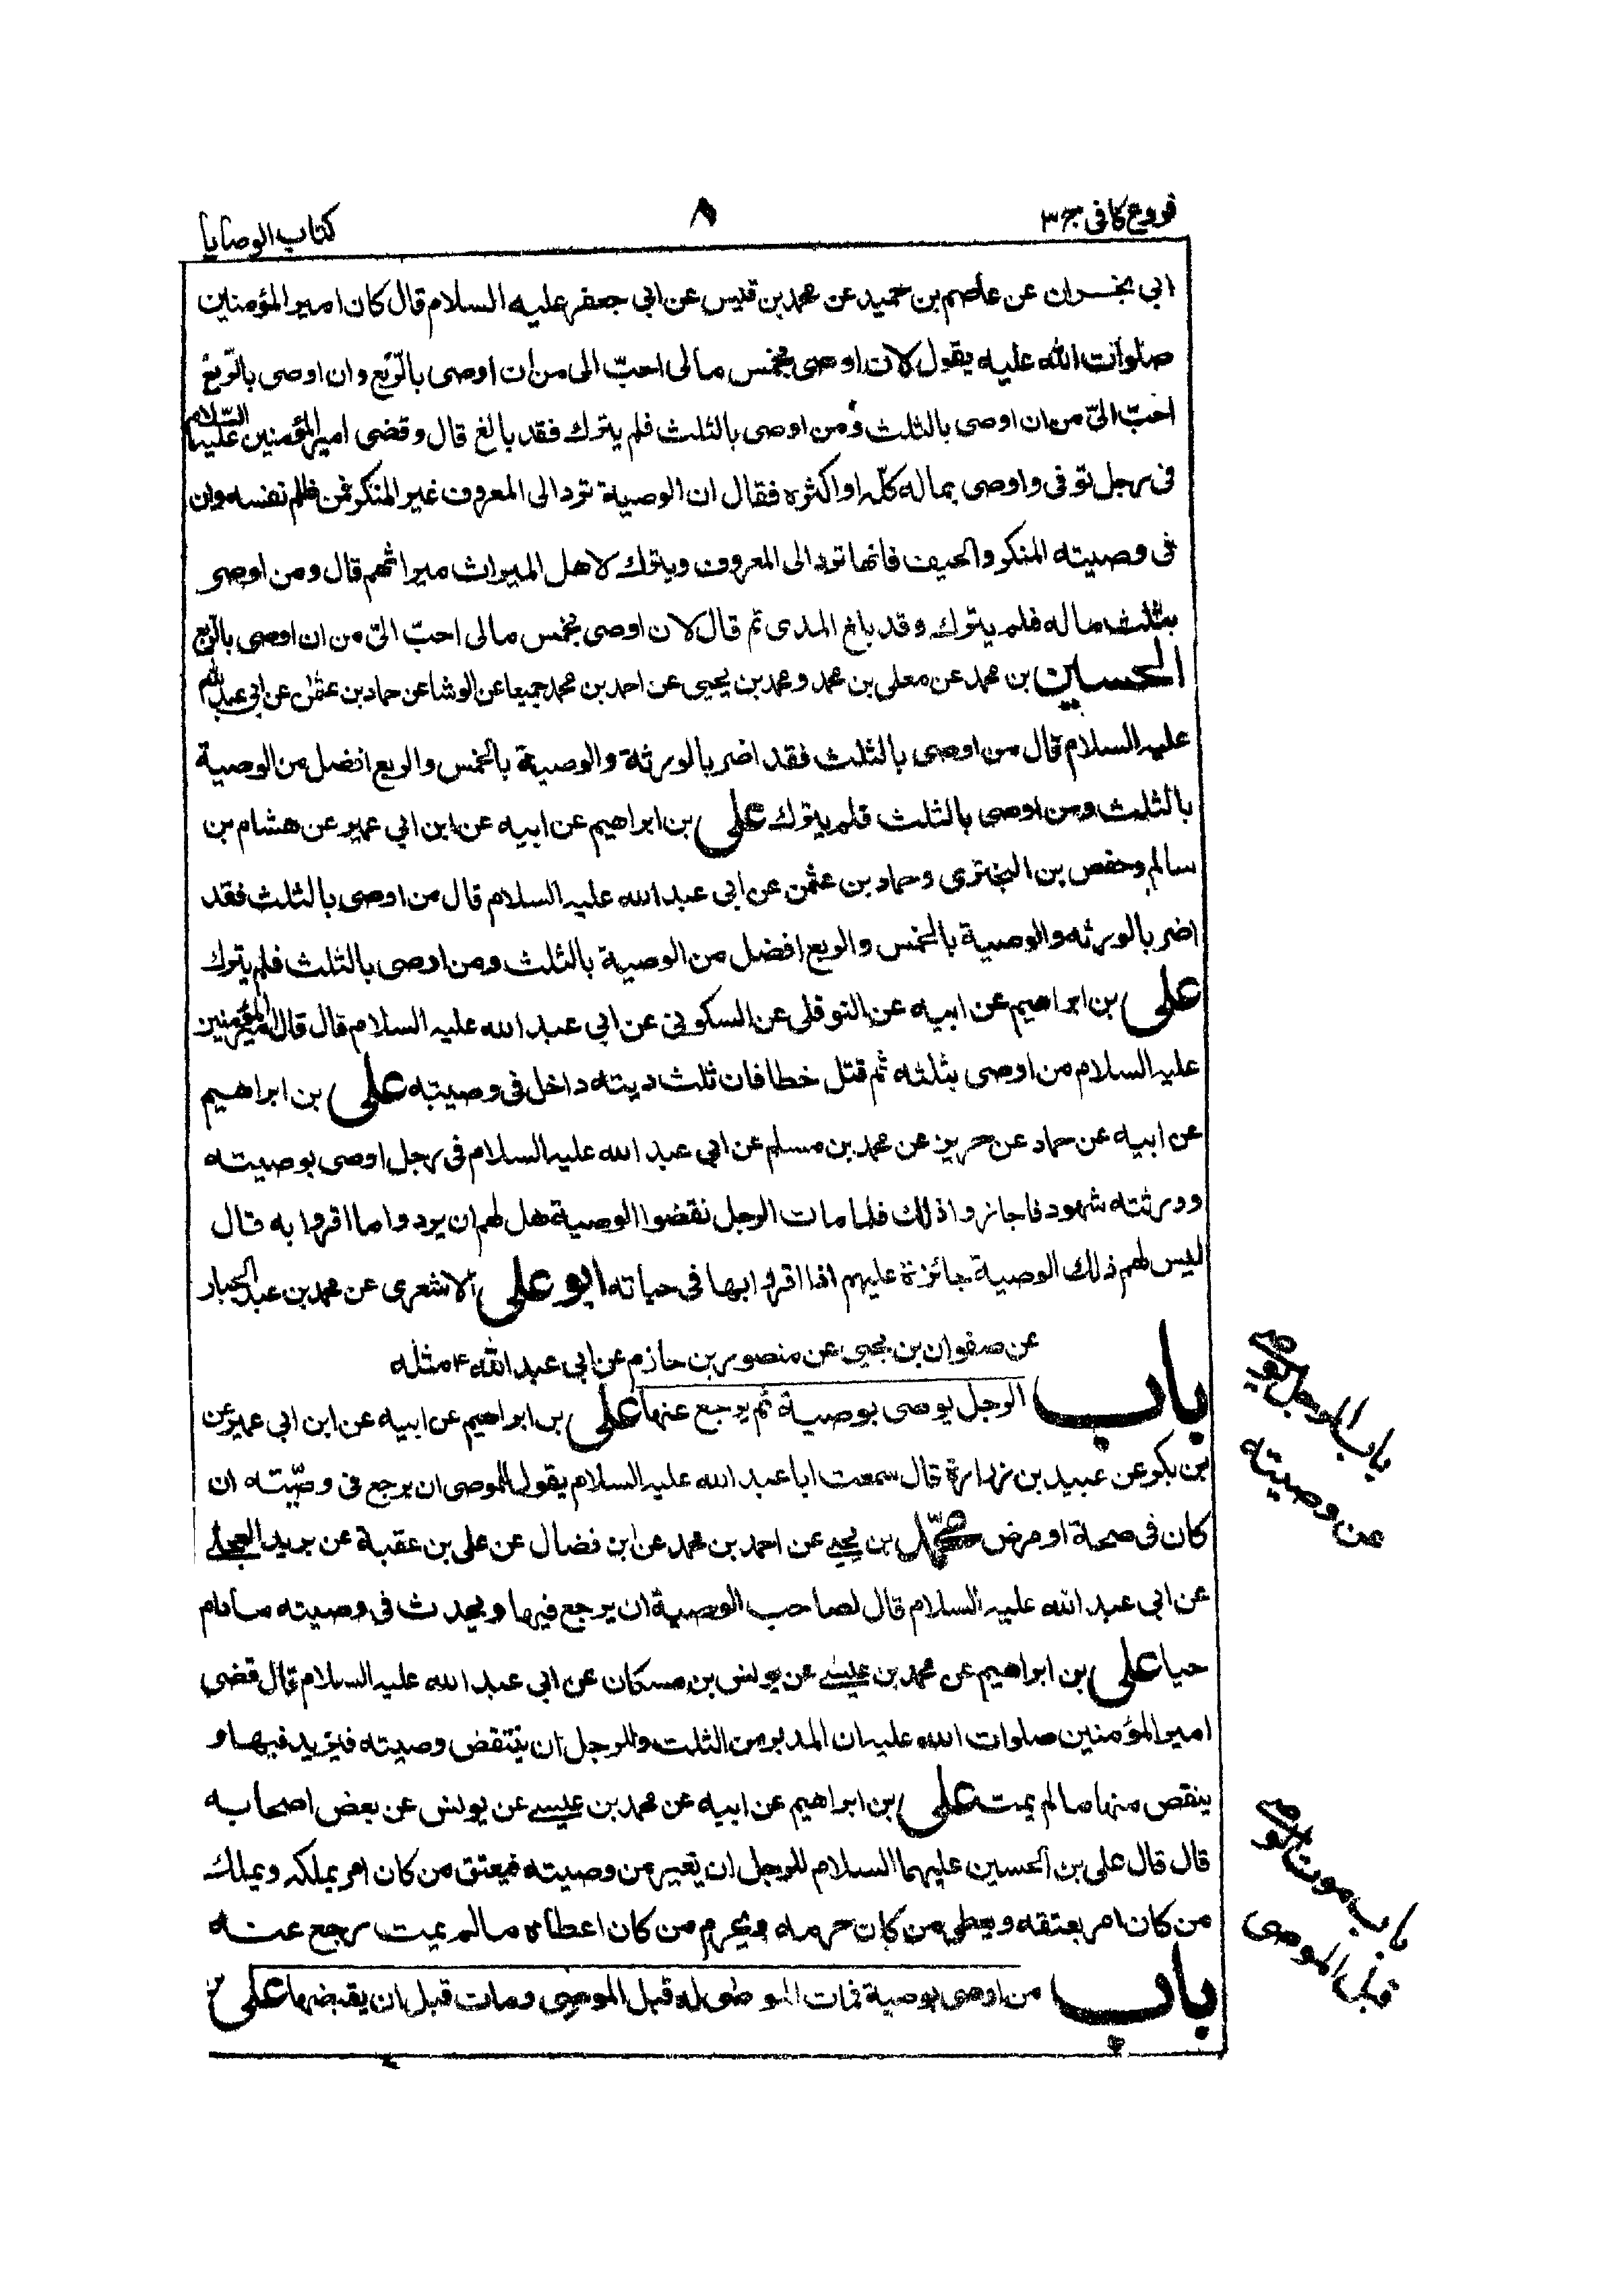 فروع كافى ج ٣
٨
كتاب الوصايا
ابي نجران عن عاصم بن حميد عن محمد بن قيس عن ابي جعفر عليه السلام قال كان امير المؤمنين
صلوات الله عليه يقول لان اوصى بخمس مالى احبّ الى من ان اوصى بالرّبع وان اوصى بالرّبع
احبّ الىّ من ان اوصى بالثلث ومن اوصى بالثلث فلم يترك فقد بالغ قال وقضى امير المؤمنين عليه السّلام
فى رجل توفى واوصى بماله كلّه او اكثره فقال ان الوصية ترد الى المعروف غير المنكر فمن ظلم نفسه واتى
فى وصيته المنكر والحيف فانها ترد الى المعروف ويترك لاهل الميراث ميراثهم قال ومن اوصى
بثلث ماله فلم يترك وقد بلغ المدى ثم قال لان اوصى بخمس مالى احبّ الىّ من ان اوصى بالرّبع
الحسين بن محمد عن معلى بن محمد ومحمد بن يحيى عن احمد بن محمد جميعا عن الوشا عن حماد بن عثمن عن ابى عبد الله
عليه السلام قال من اوصى بالثلث فقد اضر بالورثة والوصية بالخمس والربع افضل من الوصية
بالثلث ومن اوصى بالثلث فلم يترك على بن ابراهيم عن ابيه عن ابن ابي عمير عن هشام بن
سالم وحفص بن البخترى وحماد بن عثمن عن ابي عبد الله عليه السلام قال من اوصى بالثلث فقد
اضر بالورثه والوصية بالخمس والربع افضل من الوصية بالثلث ومن اوصى بالثلث فلم يترك
على بن ابراهيم عن ابيه عن النوفلى عن السكونى عن ابي عبد الله عليه السلام قال قال امير المؤمنين
عليه السلام من اوصى بثلثه ثم قتل خطا فان ثلث ديته داخل فى وصيته على بن ابراهيم
عن ابيه عن حماد عن حريز عن محمد بن مسلم عن ابي عبد الله عليه السلام فى رجل اوصى بوصيته
وورثته شهود فاجازوا ذلك فلما مات الرجل نقضوا الوصية هل لهم ان يردوا ما اقروا به قال
ليس لهم ذلك الوصية جائزة عليهم اذا اقروا بها فى حياته ابو على الاشعرى عن محمد بن عبد الجبار
عن صفوان بن يحيى عن منصور بن حازم عن ابي عبد الله ع مثله
باب الرجل يوصى بوصية ثم يرجع عنها على بن ابراهيم عن ابيه عن ابن ابي عمير عن
بن بكر عن عبيد بن زرارة قال سمعت ابا عبد الله عليه السلام يقول للموصى ان يرجع فى وصّيته ان
كان فى صحة او مرض محمّد بن يحيى عن احمد بن محمد عن ابن فضال عن على بن عقبة عن بريد العجلى
عن ابي عبد الله عليه السلام قال لصاحب الوصية ان يرجع فيها ويحدث فى وصيته مادام
حيا على بن ابراهيم عن محمد بن عيسى عن يونس بن مسكان عن ابي عبد الله عليه السلام قال قضى
امير المؤمنين صلوات الله عليه ان المدبر من الثلث وللرجل ان ينتقض وصيته فيزيد فيها و
ينقص منها مالم يمت على بن ابراهيم عن ابيه عن محمد بن عيسى عن يونس عن بعض اصحابه
قال قال على بن الحسين عليهما السلام للرجل ان يغير من وصيته فيعتق من كان امر بملكه ويملك
من كان امر بعتقه ويعطى من كان حرمه ويحرم من كان اعطاه مالم يمت يرجع عنه
باب من اوصى بوصية فمات الموصى له قبل الموصى ومات قبل ان يقبضها على بن
باب الرجل يوصى
عن وصيته
باب موت الموصى
قبل الموصى